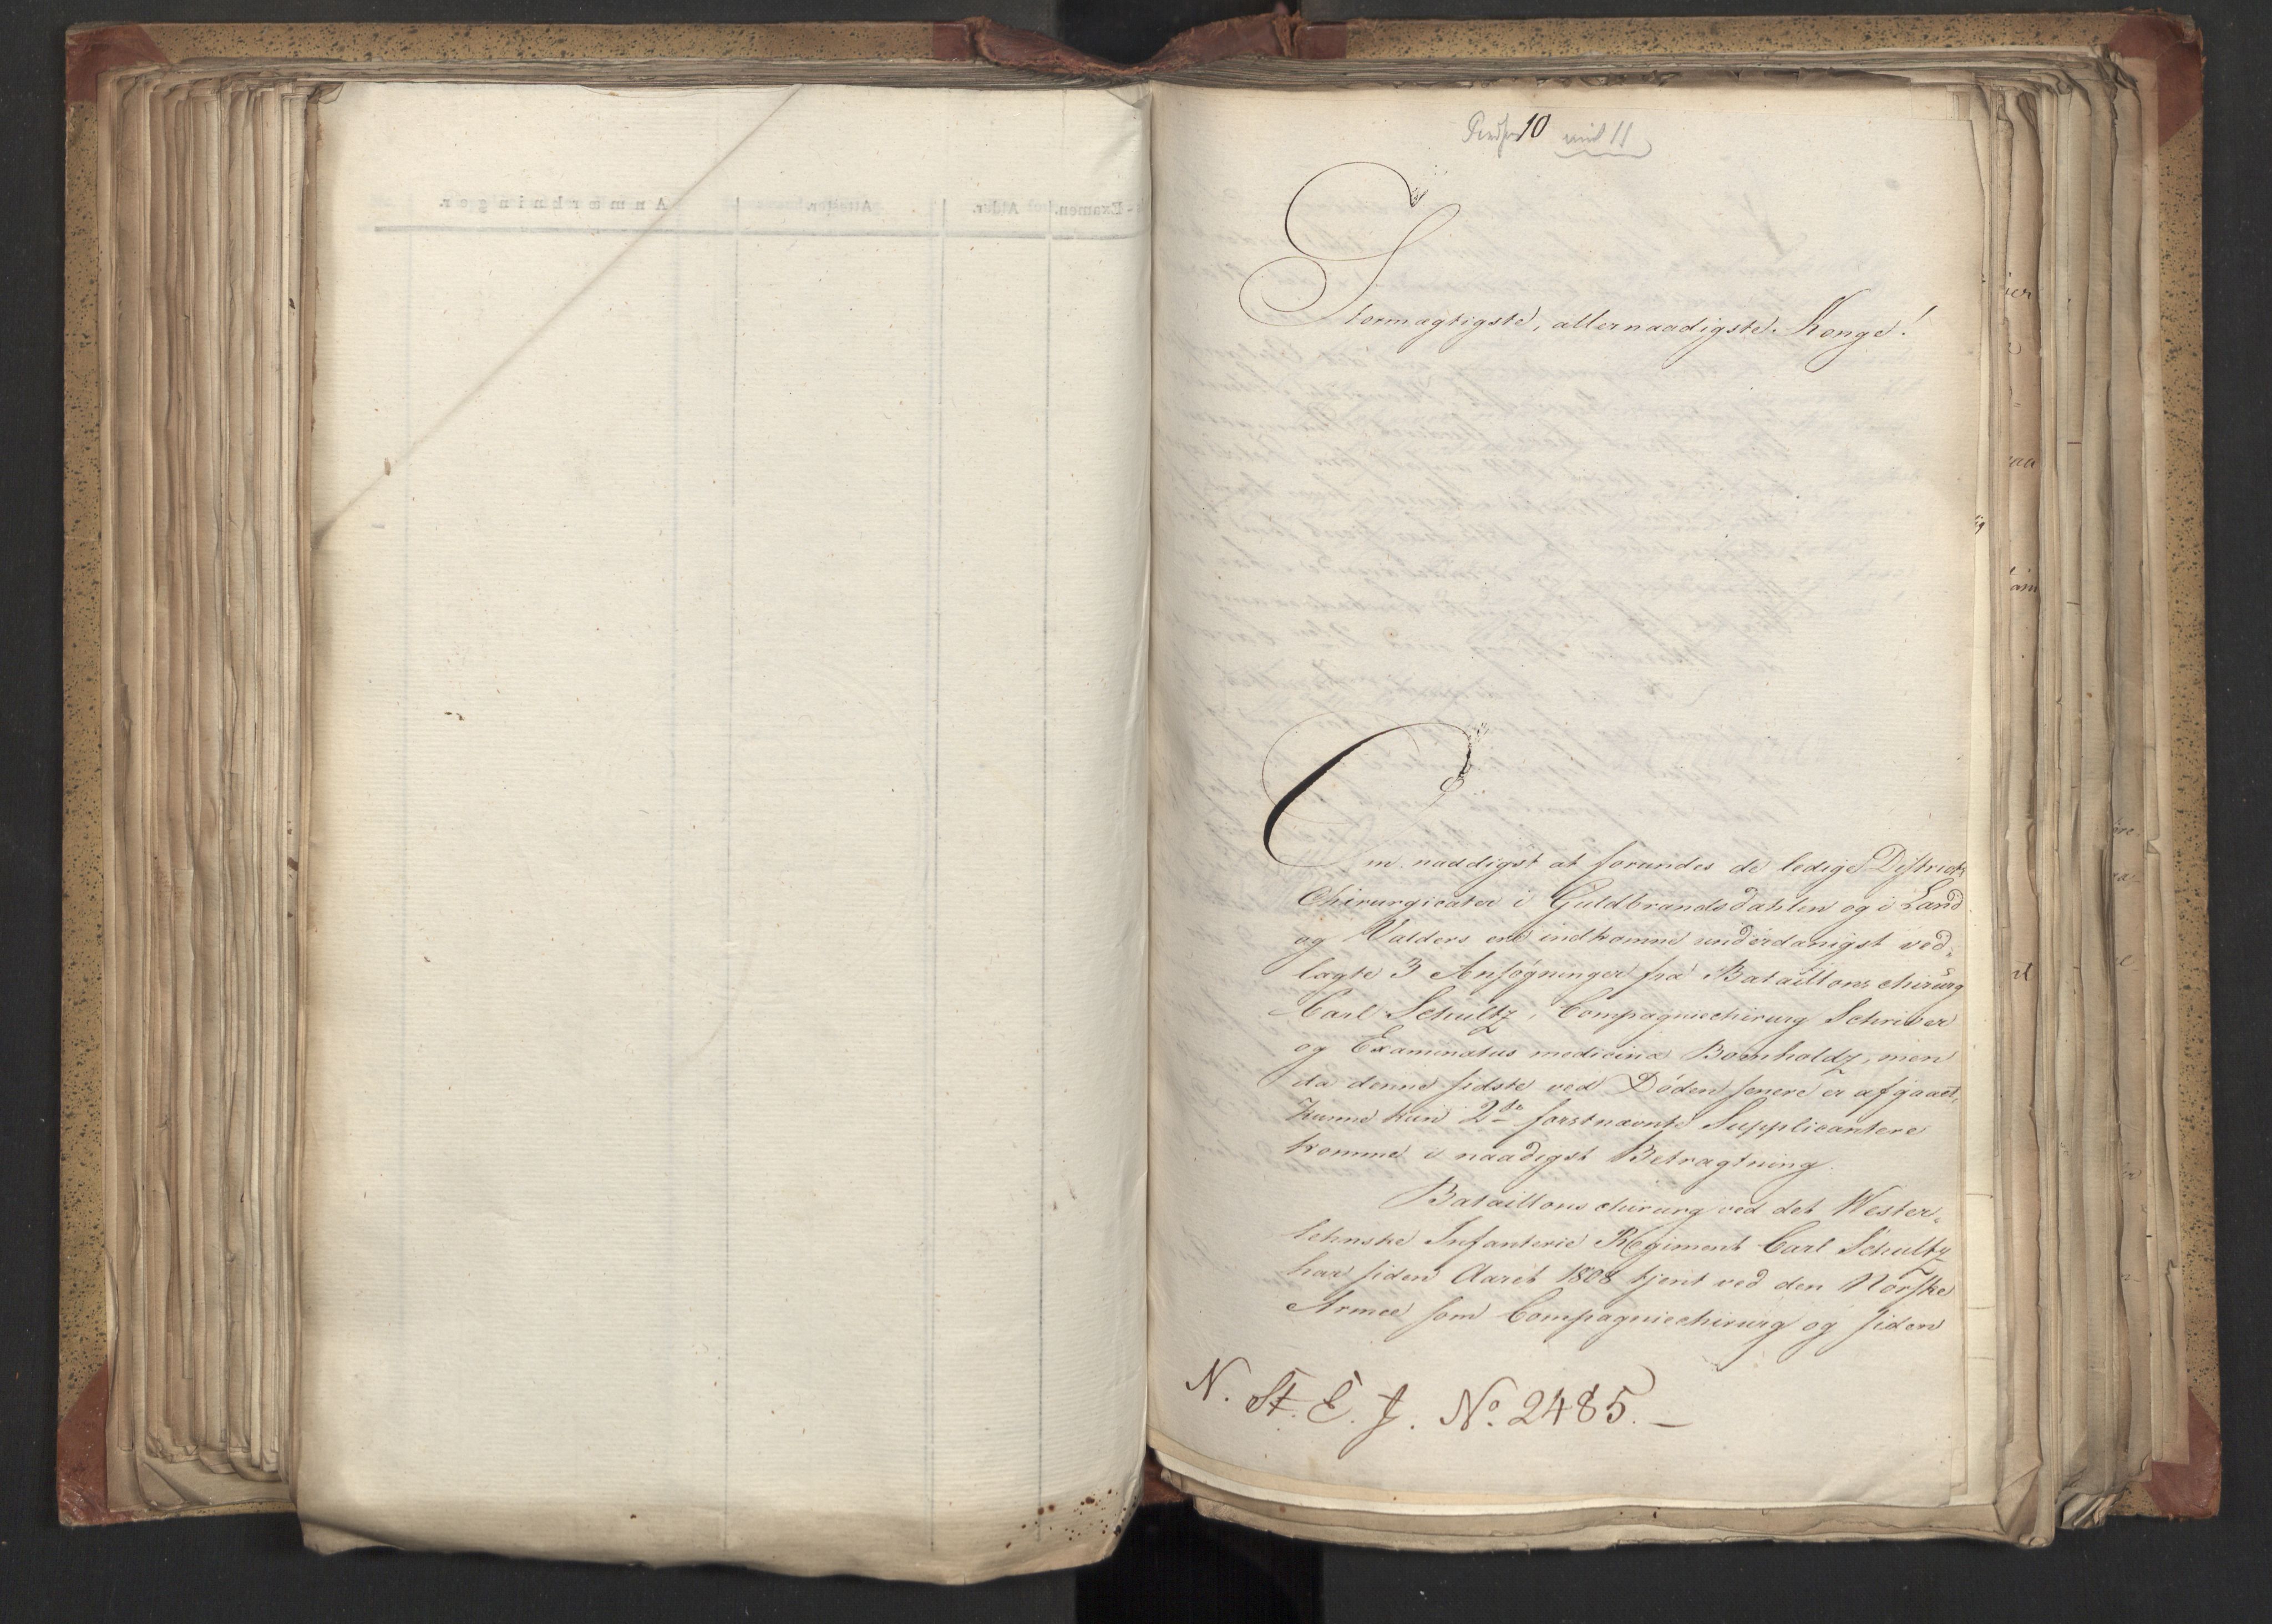 10 11
Stormægtigste, allernaadigste Konge!
Om naadigst at forundes de ledige Districts
Chirurgicater i Guldbrandsdahlen og i Land
og Valders ere indkomne underdanigst ved-
lagte 3 Ansøgninger fra Bataillonschirurg
Carl Schultz, Compagniechirurg Schriver
og Examinatus medicinæ Bornholdz, men
da denne sidste ved Døden senere er afgaaet,
kunne kun 2de førstnævnte Supplicantere
komme i naadigst Betragtning.
Bataillonschirurg ved det Wester-
lehnske Infanterie Regiment Carl Schultz
har siden Aaret 1808 tjent ved den Norske
Armee som Compagniechirurg og siden
N. St. E. J. No. 2485.–
Anmærkninger.
Attester.
Alder.
Examen.